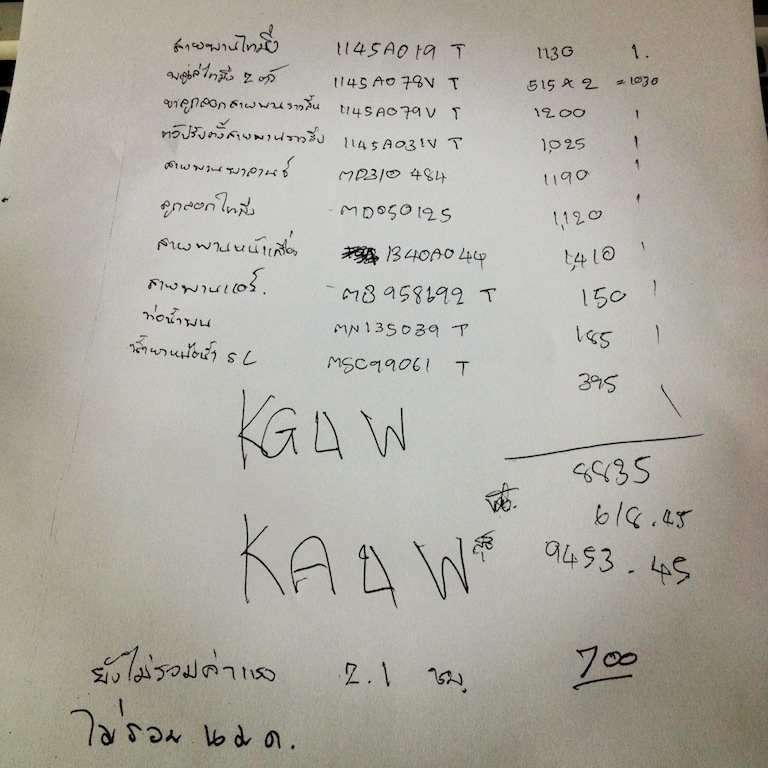 สายพานไทมิ่ง 1145A019 T 1130 1.
ไทมิ่ง 2 ตัว 1145A078V T 515 x 2 = 1030
ขาลูกลอกสายพานราวลิ้น 1145A079V T 1200 1
ตัวปรับตั้งสายพานราวลิ้น 1145A031V T 1,025 1
สายพานบาลานซ์ MD310 484 1190 1
ลูกลอกไทมิ่ง - MD050125 1,120 1
สายพานหน้าเครื่อง 1340A044 1,410 1
สายพานแอร์. - MB958692 T 150 1
ท่อน้ำ MN135039 T 185 1
น้ำยาหม้อน้ำ 5 L MSC99061 T 395 \
KG4W
8835
618.45
KA4W สุทธิ 9453.45
ยังไม่รวมค่าแรง 2.1 ชม. 700
ไม่รวม นมค.